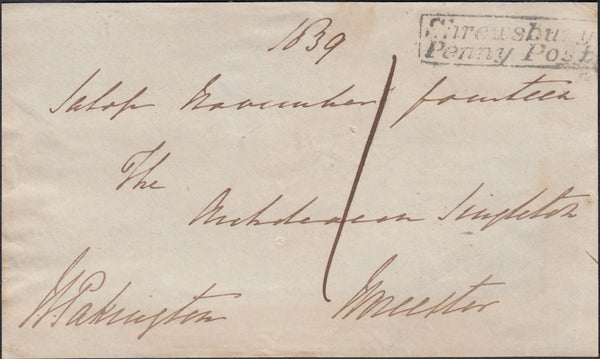 1839
Shrewsbury
Penny Post
Salop November fourteen
The
Archdeacon Singleton
Worcester
J. Pakington